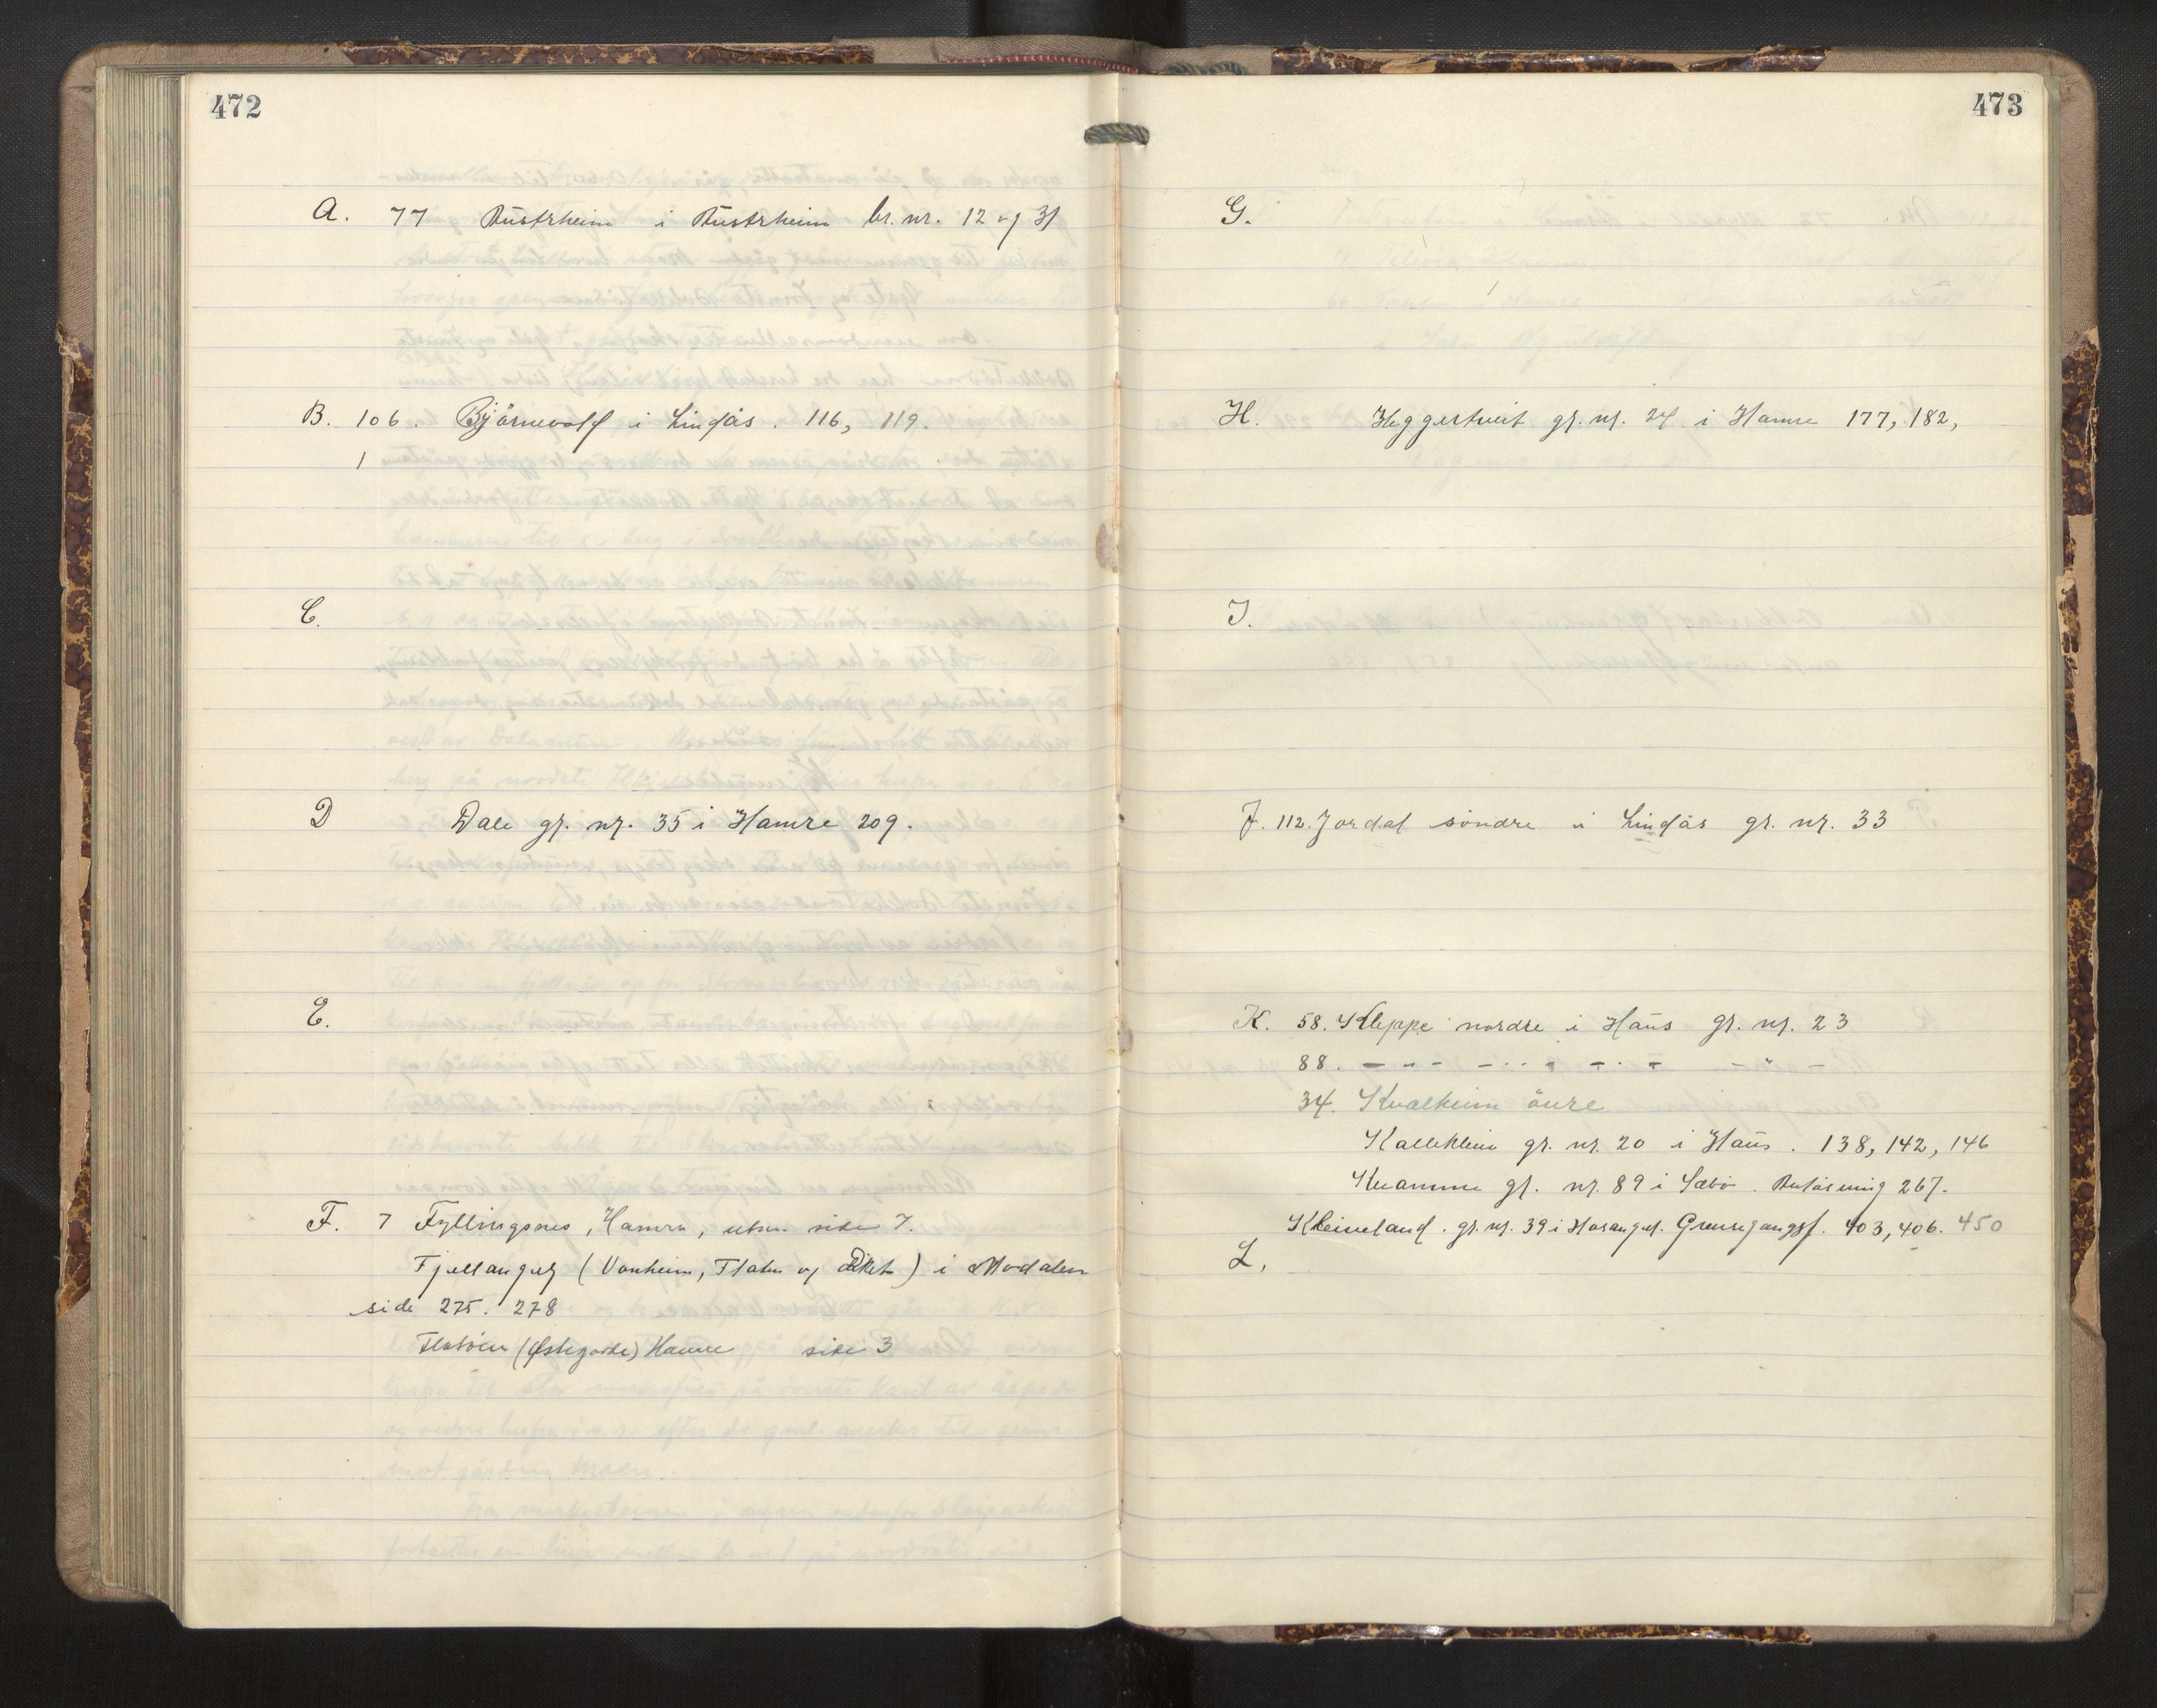 472
A. 77 Austrheim i Austrheim br. nr. 12 og 31
B. 106. Björnevoll i Lindås. 116, 119.
1
C.
D Dale gr. nr. 35 i Hamre 209.
E.
F. 7 Fyllingsnes, Hamre, utsn. side 7.
Fjellanger (Vonheim, Flaten og Øiket) i Modalen
side 275. 278
Flatöien (Østegarde) Hamre side 3
473
G.
H. Heggertveit gr. nr. 24 i Hamre 177, 182,
I.
J. 112. Jordal söndre i Lindås gr. nr. 33
K. 58. Kleppe nordre i Haus gr. nr. 23
88. — „ — — „ — — „ —
34. Kvalheim övre
Kalleklein gr. nr. 20 i Haus. 138, 142, 146
Kvamme gr. nr. 89 i Sæbö. Avlösning 267.
Kleiveland. gr. nr. 39 i Hosanger. Grensegangsf. 403, 406. 450
L.